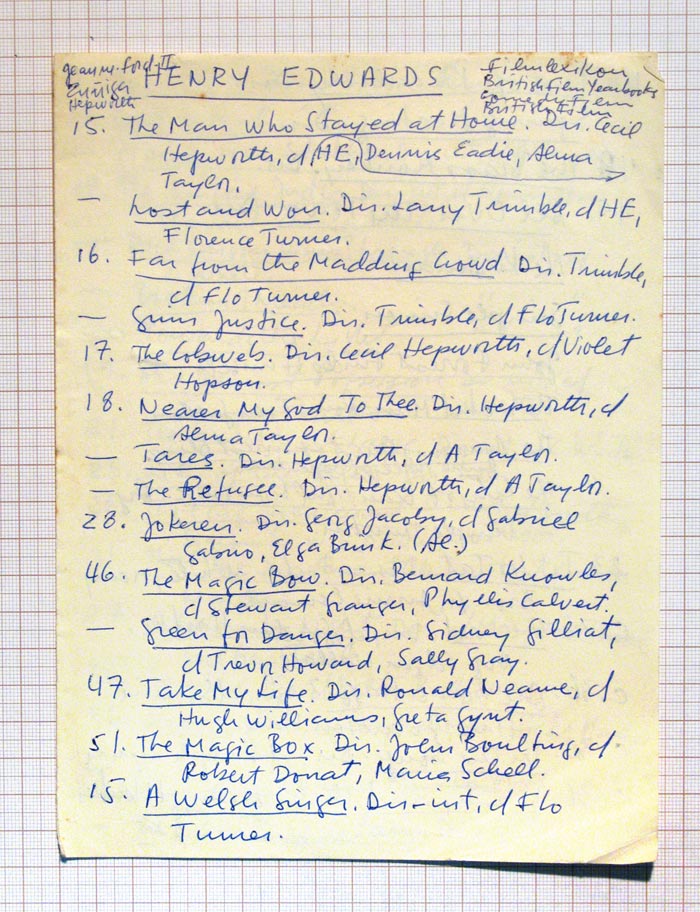 Jeanm. Ford-II
Hepworth
HENRY EDWARDS
Filmlexikon
British Film Yearbooks
British Film
15. The Man Who Stayed at Home. Dir. Cecil
Hepworth, d/ HE, Dennis Eadie, Alma
Taylor.
— Lost and Won. Dir. Larry Trimble, d/ HE,
Florence Turner.
16. Far from the Madding Crowd Dir. Trimble,
d/ Flo Turner.
— Grim Justice. Dir. Trimble, d/ Flo Turner.
17. The Cobweb. Dir. Cecil Hepworth, d/ Violet
Hopson.
18. Nearer My God To Thee. Dir. Hepworth, d/
Alma Taylor.
— Tares. Dir. Hepworth, d/ A Taylor.
— The Refugee. Dir. Hepworth, d/ A Taylor.
28. Jokeren. Dir. Georg Jacoby, d/ Gabriel
Gabrio, Elga Brink. (Al.)
46. The Magic Bow. Dir. Bernard Knowles,
d/ Stewart Granger, Phyllis Calvert.
— Green for Danger. Dir. Sidney Gilliat,
d/ Trevor Howard, Sally Gray.
47. Take My Life. Dir. Ronald Neame, d/
Hugh Williams, Greta Gynt.
51. The Magic Box. Dir. John Boulting, d/.
Robert Donat, Maria Schell.
15. A Welsh Singer. Dir-int, d/ Flo
Turner.